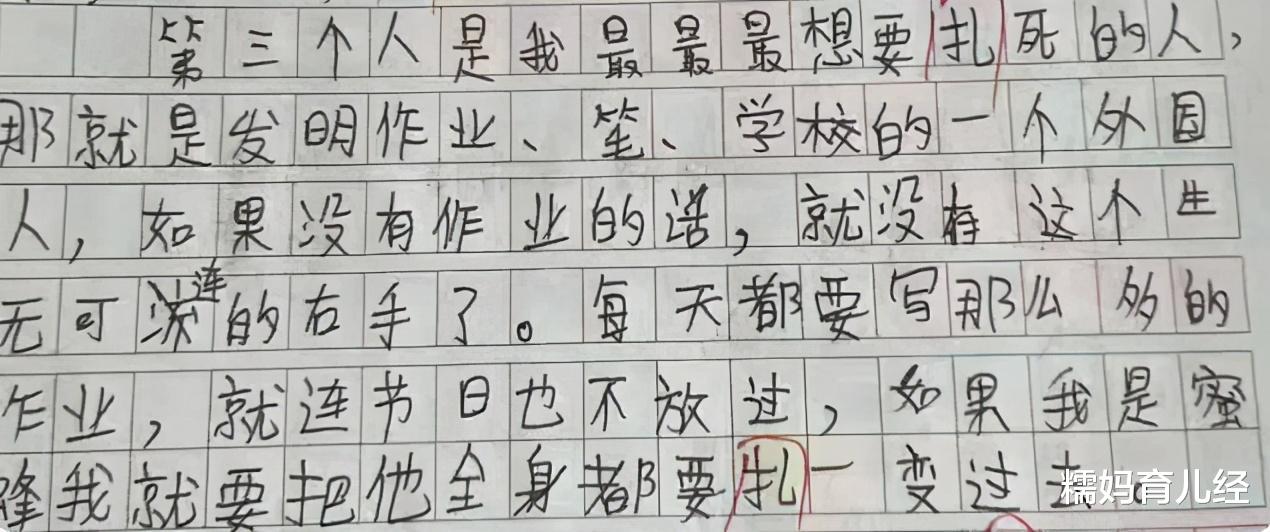 第三个人是我最最最想要扎死的人，
那就是发明作业、笔、学校的一个外国
人，如果没有作业的话，就没有这个生
无可连的右手了。每天都要写那么多的
作业，就连节日也不放过，如果我是蜜
蜂我就要把他全身都要扎一变过去
糯妈育儿经